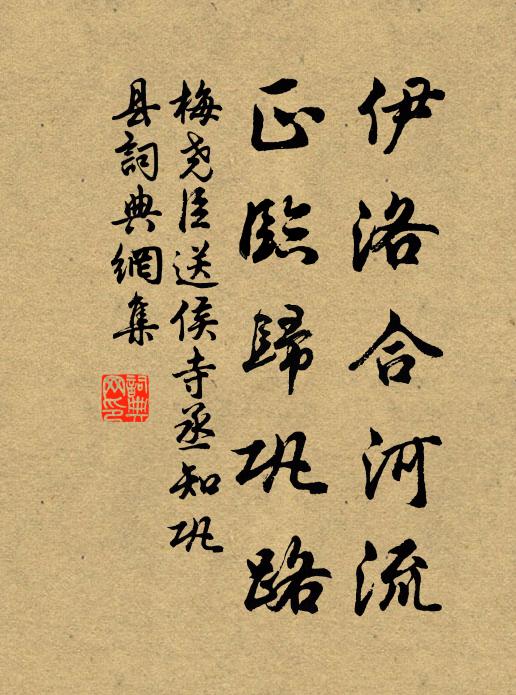 伊洛合河流
正臨歸巩路
梅尧臣送侯寺丞知巩
县詞典網集
詞典網印